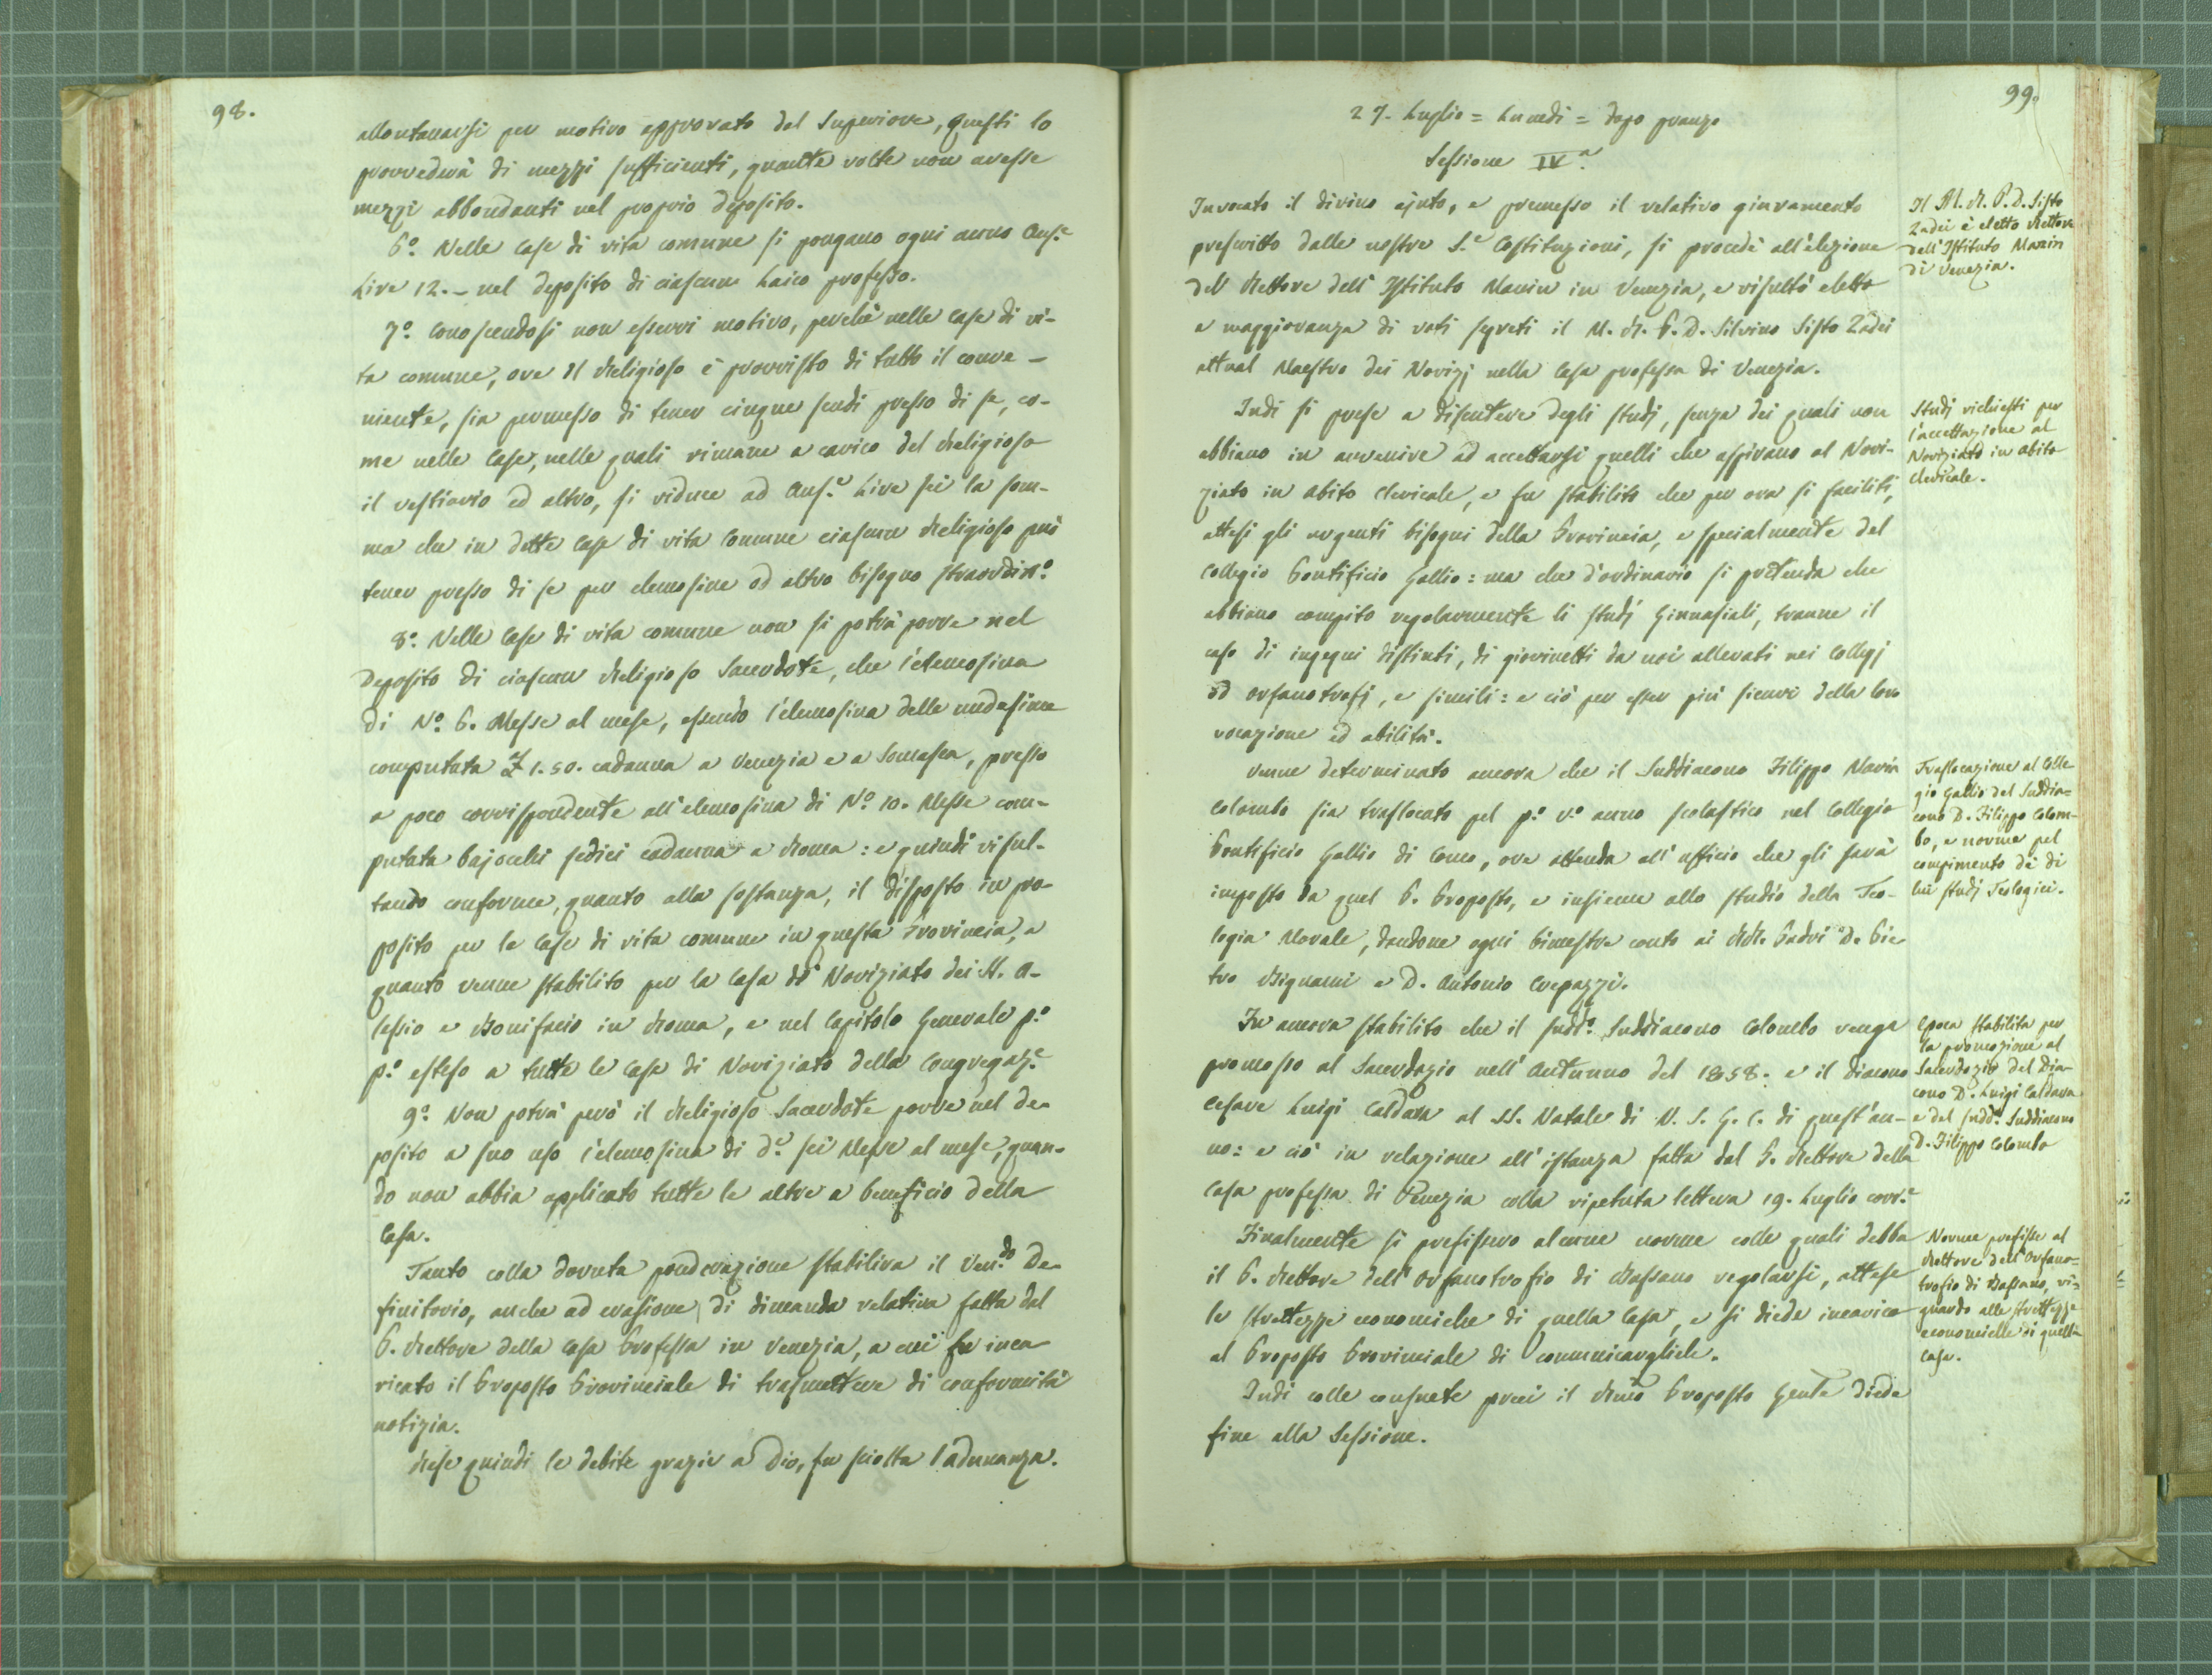 98.
allontanarsi per motivo approvato dal Superiore, questi lo
provvederà di mezzi sufficienti, quante volte non avesse
mezzi abbondanti nel proprio deposito.
6.º Nelle Case di vita comune si pongano ogni anno Aus.e
Lire 12.– nel deposito di ciascun Laico professo.
7.º Conoscendosi non esservi motivo, perchè nelle Case di vi-
ta comune, ove il Religioso è provvisto di tutto il conve-
niente, sia permesso di tener cinque scudi presso di se, co-
me nelle Case, nelle quali rimane a carico del Religioso
il vestiario ed altro, si riduce ad Aus.e Lire sei la som-
ma che in dette Case di vita Comune ciascun Religioso può
tener presso di se per elemosine od altro bisogno straordin.º
8.º Nelle Case di vita comune non si potrà porre nel
deposito di ciascun Religioso Sacerdote, che l'elemosina
di N.º 6. Messe al mese, essendo l'elemosina delle medesime
computata £ 1.50. cadauna a Venezia e a Somasca, presso
a poco corrispondente all'elemosina di N.º 10. Messe com-
putata bajocchi sedici cadauna a Roma: e quindi risul-
tando conforme, quanto alla sostanza, il disposto in pro-
posito per le Case di vita comune in questa Provincia, a
quanto venne stabilito per la Casa di Noviziato dei SS. A-
lessio e Bonifacio in Roma, e nel Capitolo Generale p.º
p.º esteso a tutte le Case di Noviziato della Congregaz.e
9.º Non potrà però il Religioso Sacerdote porre nel de-
posito a suo uso l'elemosina di d.e sei Messe al mese, quan-
do non abbia applicato tutte le altre a beneficio della
Casa.
Tanto colla dovuta ponderazione stabiliva il Ven.do De-
finitorio, anche ad evasione di dimanda relativa fatta dal
P. Rettore della Casa Professa in Venezia, a cui fu inca
ricato il Preposto Provinciale di trasmettere di conformità
notizia.
Rese quindi le debite grazie a Dio, fu sciolta l'adunanza.
99.
27. Luglio = Lunedì = dopo pranzo
Sessione IV.a
Invocato il divino ajuto, e premesso il relativo giuramento
prescritto dalle nostre S.e Costituzioni, si procedè all'elezione
del Rettore dell'Istituto Manin in Venezia, e risultò eletto
a maggioranza di voti segreti il M. R. P. D. Silvino Sisto Zadei
attual Maestro dei Novizj nella Casa professa di Venezia.
Il M. R. P. D. Sisto
Zadei è eletto Rettore
dell'Istituto Manin
di Venezia.
Indi si prese a discutere degli studj, senza dei quali non
abbiano in avvenire ad accettarsi quelli che aspirano al Novi-
ziato in abito Clericale, e fu stabilito che per ora si faciliti,
attesi gli urgenti bisogni della Provincia, e specialmente del
Collegio Pontificio Gallio: ma che d'ordinario si pretenda che
abbiano compito regolarmente li studj Ginnasiali, tranne il
caso di ingegni distinti, di giovinetti da noi allevati nei Collegj
od orfanotrofj, e simili: e ciò per esser più sicuri della loro
vocazione ed abilità.
Studj richiesti per
l'accettazione al
Noviziato in abito
clericale.
Venne determinato ancora che il Suddiacono Filippo Maria
Colombo sia traslocato pel p.º v.º anno scolastico nel Collegio
Pontificio Gallio di Como, ove attenda all'ufficio che gli sarà
imposto da quel P. Preposto, e insieme allo studio della Teo-
logia Morale, dandone ogni bimestre conto ai RR. Padri D. Pie
tro Bignami e D. Antonio Crepazzi.
Traslocazione al Colle
gio Gallio del Suddia-
cono D. Filippo Colom-
bo, e norme pel
compimento de' di
lui studj Teologici.
Fu ancora stabilito che il sudd.º Suddiacono Colombo venga
promosso al Sacerdozio nell'Autunno del 1858. e il Diacono
Cesare Luigi Caldara al SS. Natale di N. S. G. C. di quest'an-
no: e ciò in relazione all'istanza fatta dal P. Rettore della
Casa professa di Venezia colla ripetuta lettera 19. Luglio corr.e
Epoca stabilita per
la promozione al
Sacerdozio del Dia-
cono D. Luigi Caldara
e del sudd.º Suddiacono
D. Filippo Colombo
Finalmente si prefissero alcune norme colle quali debba
il P. Rettore dell'Orfanotrofio di Bassano regolarsi, attese
le strettezze economiche di quella Casa, e si diede incarico
al Preposto Provinciale di comunicargliele.
Norme prefisse al
Rettore dell'Orfano-
trofio di Bassano, ri-
guardo alle strettezze
economiche di quella
Casa.
Indi colle consuete preci il Rmo Preposto Gen.le diede
fine alla Sessione.